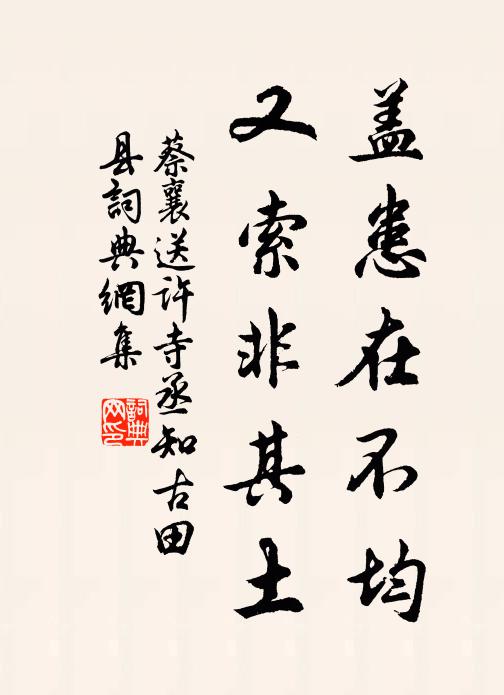 盖患在不均
又索非其土
蔡襄送许寺丞知古田
县詞典網集
詞典
网印